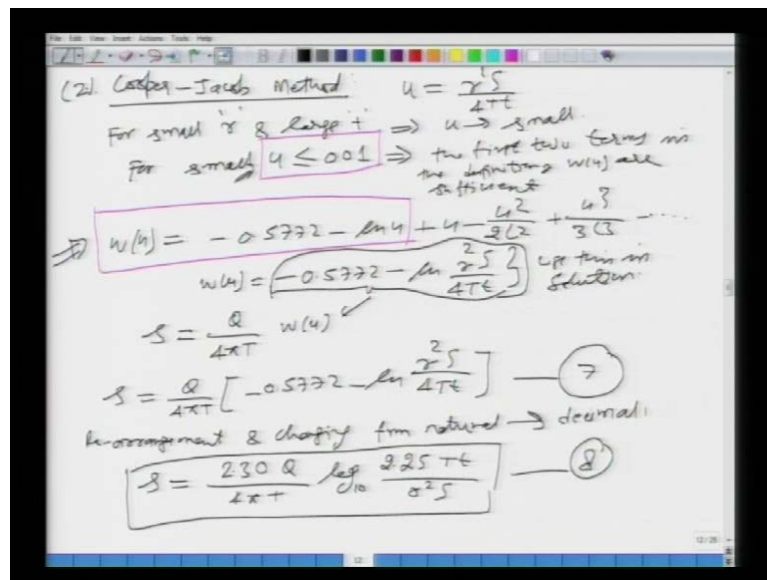 File Edit View Insert Actions Tools Help
(2) Cooper-Jacob Method: u = r²S / 4Tt
For small 'r' & large 't' ⇒ u → small.
For small u ≤ 0.01 ⇒ the first two terms in
the definition of W(u) are
sufficient
⇒ W(u) = -0.5772 - ln u + u - u²/2∟2 + u³/3∟3 ....
W(u) = {-0.5772 - ln r²S/4Tt} use this in
solution.
s = Q/4πT W(u)
s = Q/4πT [-0.5772 - ln r²S/4Tt] — 7
Re-arrangement & changing from natural → decimal.
s = 2.30 Q/4πT log₁₀ 2.25 Tt/r²S — 8
12/25
12